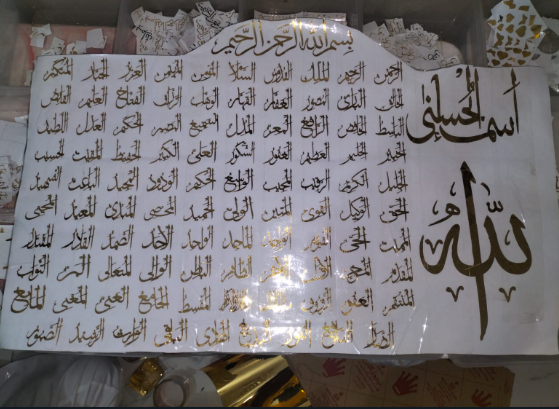 بسم الله الرحمن الرحيم
أسماء الحسنى
الله
الرحمن الرحيم الملك القدوس السلام المؤمن المهيمن العزيز الجبار المتكبر
الخالق البارئ المصور الغفار القهار الوهاب الرزاق الفتاح العليم القابض
الباسط الخافض الرافع المعز المذل السميع البصير الحكم العدل اللطيف
الخبير الحليم العظيم الغفور الشكور العلي الكبير الحفيظ المقيت الحسيب
الجليل الكريم الرقيب المجيب الواسع الحكيم الودود المجيد الباعث الشهيد
الحق الوكيل القوي المتين الولي الحميد المحصي المبدئ المعيد المحيي
المميت الحي القيوم الماجد الواحد الأحد الصمد القادر المقتدر
المقدم المؤخر الأول الظاهر الباطن الوالي المتعالي البر التواب
المنتقم العفو الرؤوف المقسط الجامع الغني المغني المانع
الضار النافع النور الباقي الوارث الرشيد الصبور